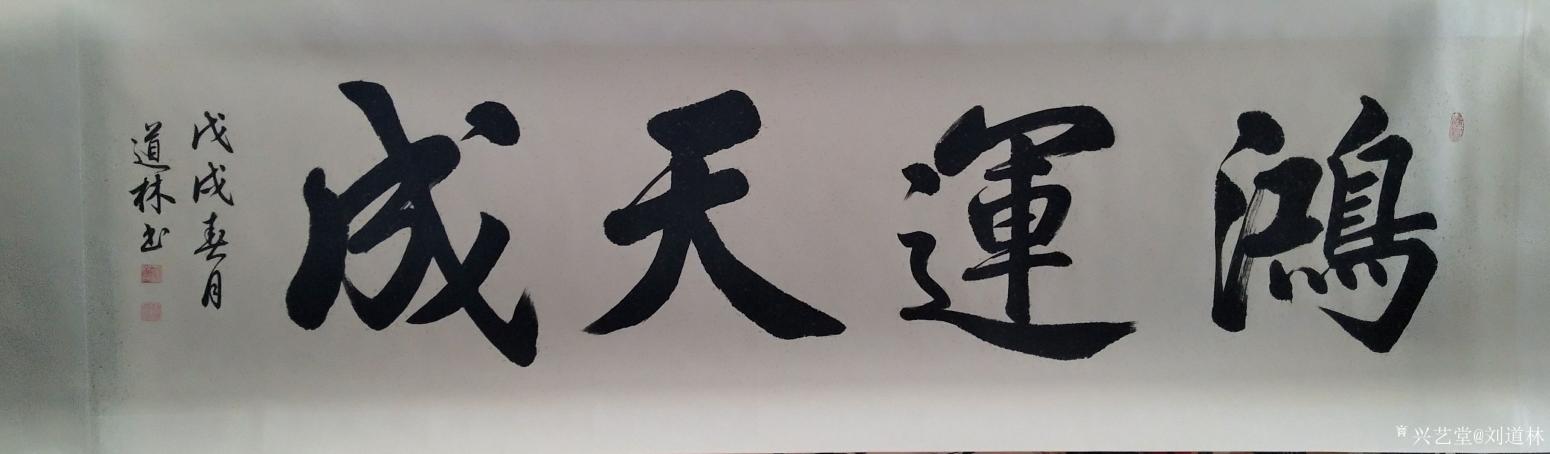 鴻運天成
戊戌春月
道林书
兴艺堂@刘道林